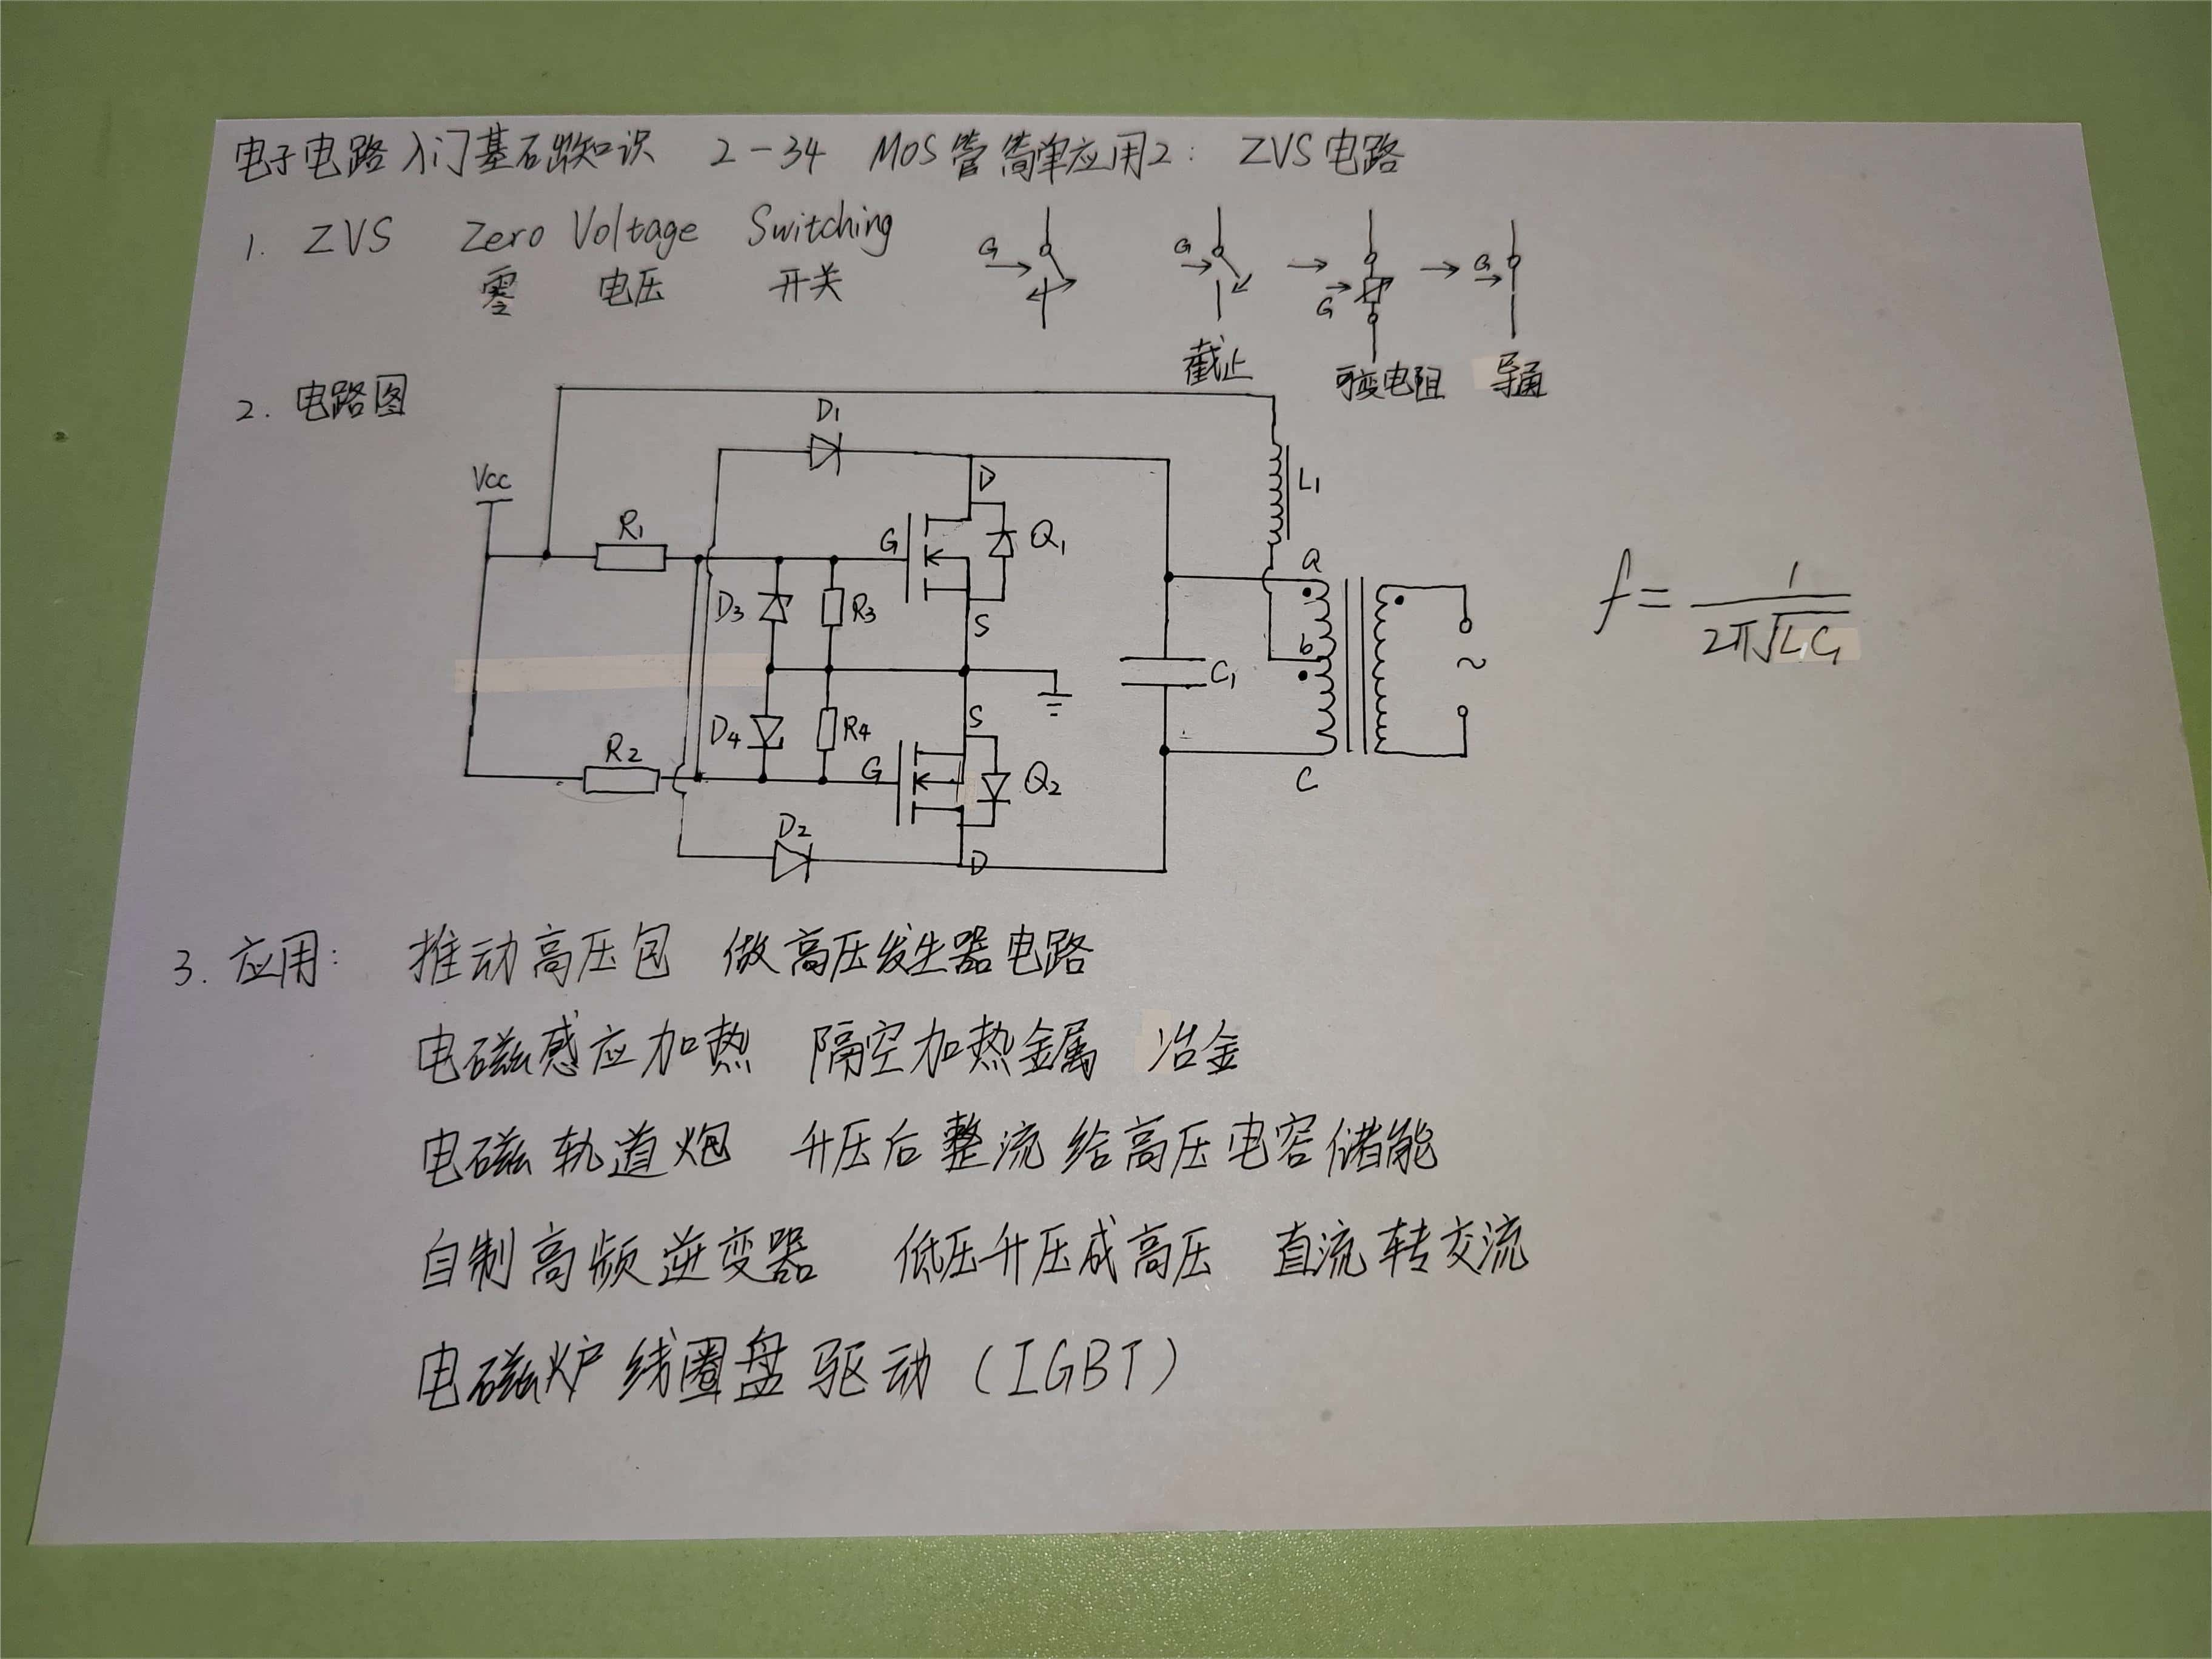 电子电路入门基础知识 2-34 MOS管简单应用2: ZVS电路
1. ZVS Zero Voltage Switching
零 电压 开关
G G G G
截止 可变电阻 导通
2. 电路图
D1
Vcc D L1
R1 G Q1 a
D3 R3 S b
f = 1/(2π√(LC1))
C1 ~
D4 R4 S
R2 G Q2 C
D2 D
3. 应用: 推动高压包 做高压发生器电路
电磁感应加热 隔空加热金属 冶金
电磁轨道炮 升压后整流给高压电容储能
自制高频逆变器 低压升压成高压 直流转交流
电磁炉线圈盘驱动(IGBT)